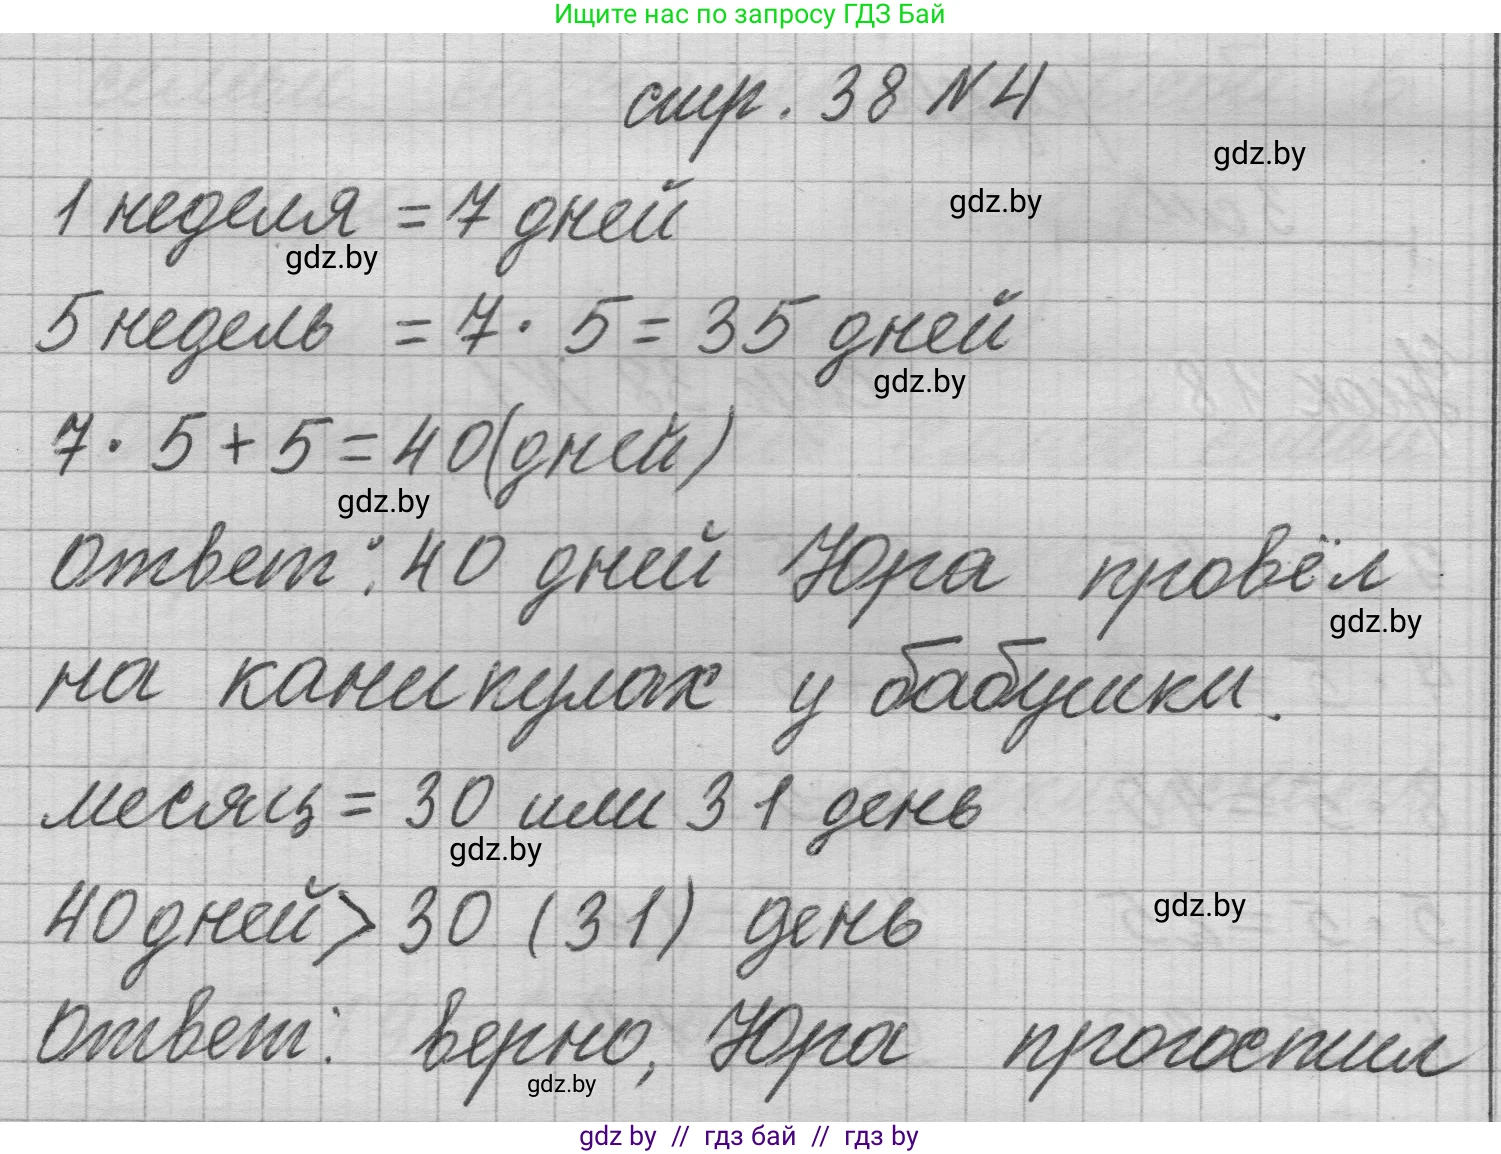 Ищите нас по запросу ГДЗ Бай
стр. 38 N 4
gdz.by
1 неделя = 7 дней
gdz.by
gdz.by
5 недель = 7 · 5 = 35 дней
gdz.by
7 · 5 + 5 = 40 (дней)
gdz.by
Ответ: 40 дней Юра провёл
gdz.by
на каникулах у бабушки.
месяц = 30 или 31 день
gdz.by
40 дней > 30 (31) день
gdz.by
Ответ: верно, Юра прогостил
gdz.by
gdz by // гдз бай // гдз by